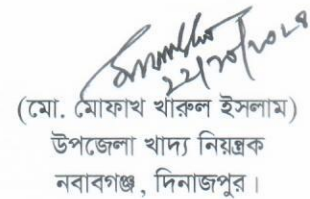 ২২/১০/২০২৪
(মো. মোফাখ খারুল ইসলাম)
উপজেলা খাদ্য নিয়ন্ত্রক
নবাবগঞ্জ, দিনাজপুর।